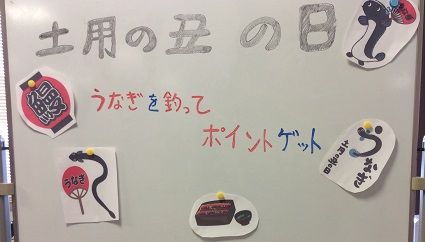 土用の丑の日
鰻
うなぎを釣って
ポイントゲット
うなぎ
うなぎ
土用の丑の日